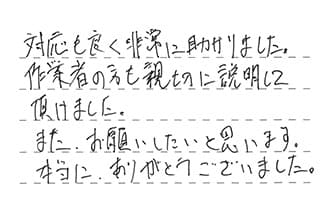 対応も良く非常に助かりました。
作業者の方も親切に説明して
頂けました。
また、お願いしたいと思います。
本当に、ありがとうございました。